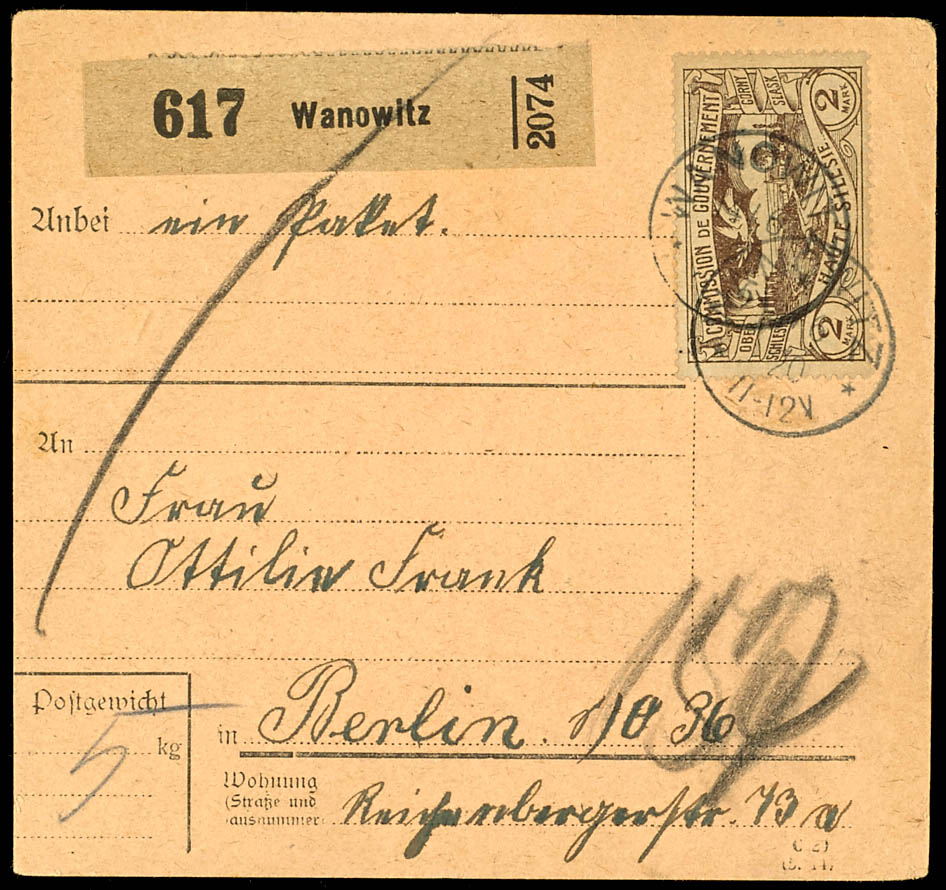 617 Wanowitz 2074
COMMISSION DE GOUVERNEMENT
GORNY SLASK
2 MARK
HAUTE SILESIE
OBER SCHLESIEN
2 MARK
* WANOWITZ *
20
11-12V
Anbei ein Paket.
An
Frau
Ottilie Frank
Postgewicht
5 kg
in Berlin. SO 36
Wohnung
(Straße und
ausnummer
Reichenbergerstr. 73 a